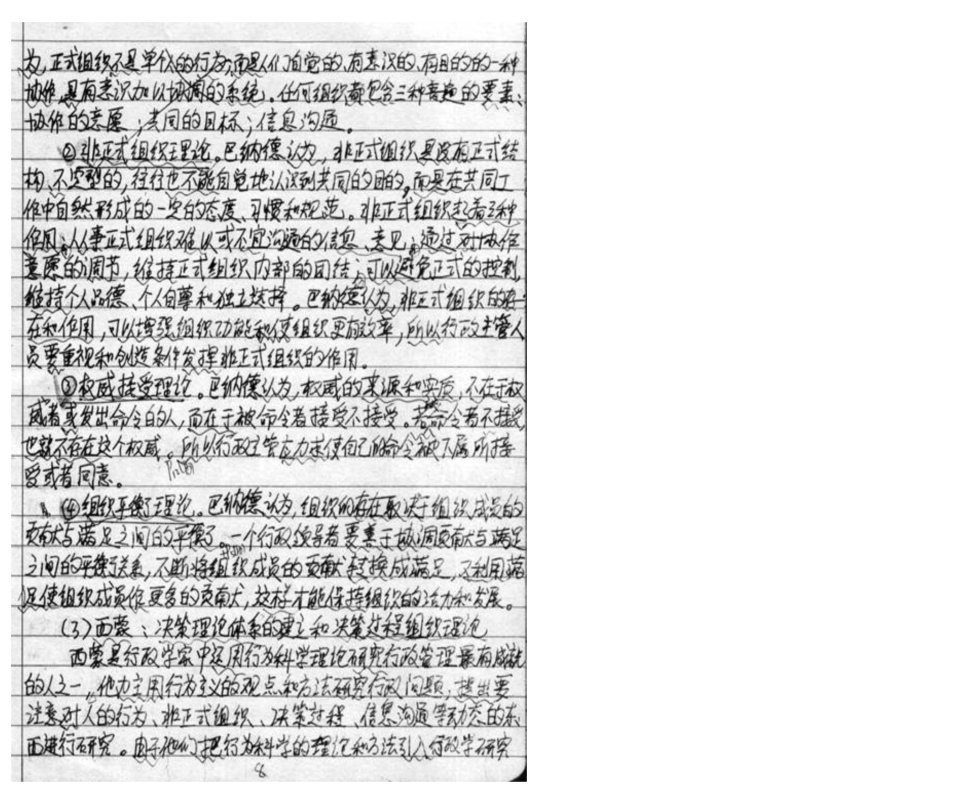 为,正式组织不是单个人的行为,而是人们自觉的、有意识的、有目的的一种
协作,是有意识加以协调的系统。任何组织都包含三种普遍的要素:
协作的意愿;共同的目标;信息沟通。
②非正式组织理论。巴纳德认为,非正式组织是没有正式结
构、不定型的,往往也不能自觉地认识到共同的目的。而是在共同工
作中自然形成的一定的态度、习惯和规范。非正式组织起着三种
作用:从事正式组织难以或不宜沟通的信息、意见;通过对协作
意愿的调节,维持正式组织内部的团结;可以避免正式的控制,
维持个人品德、个人自尊和独立选择。巴纳德认为,非正式组织的存
在和作用,可以增强组织功能和使组织更有效率,所以行政主管人
员要重视和创造条件发挥非正式组织的作用。
③权威接受理论。巴纳德认为,权威的来源和实质,不在于权
威者或发出命令的人,而在于被命令者接受不接受。若命令者不接受,
也就不存在这个权威。所以行政主管应力求使自己的命令被下属所接
受或者同意。
④组织平衡理论。巴纳德认为,组织的存在取决于组织成员的
贡献与满足之间的平衡。一个行政领导者要善于协调贡献与满足
之间的平衡关系,不断将组织成员的贡献转换成满足,又利用满
足使组织成员作更多的贡献,这样才能保持组织的活力和发展。
(3)西蒙:决策理论体系的建立和决策过程组织理论
西蒙是行政学家中运用行为科学理论研究行政管理最有成就
的人之一,他力主用行为主义的观点和方法研究行政问题,提出要
注意对人的行为、非正式组织、决策过程、信息沟通等动态的东
西进行研究。由于他们把行为科学的理论和方法引入行政学研究
8